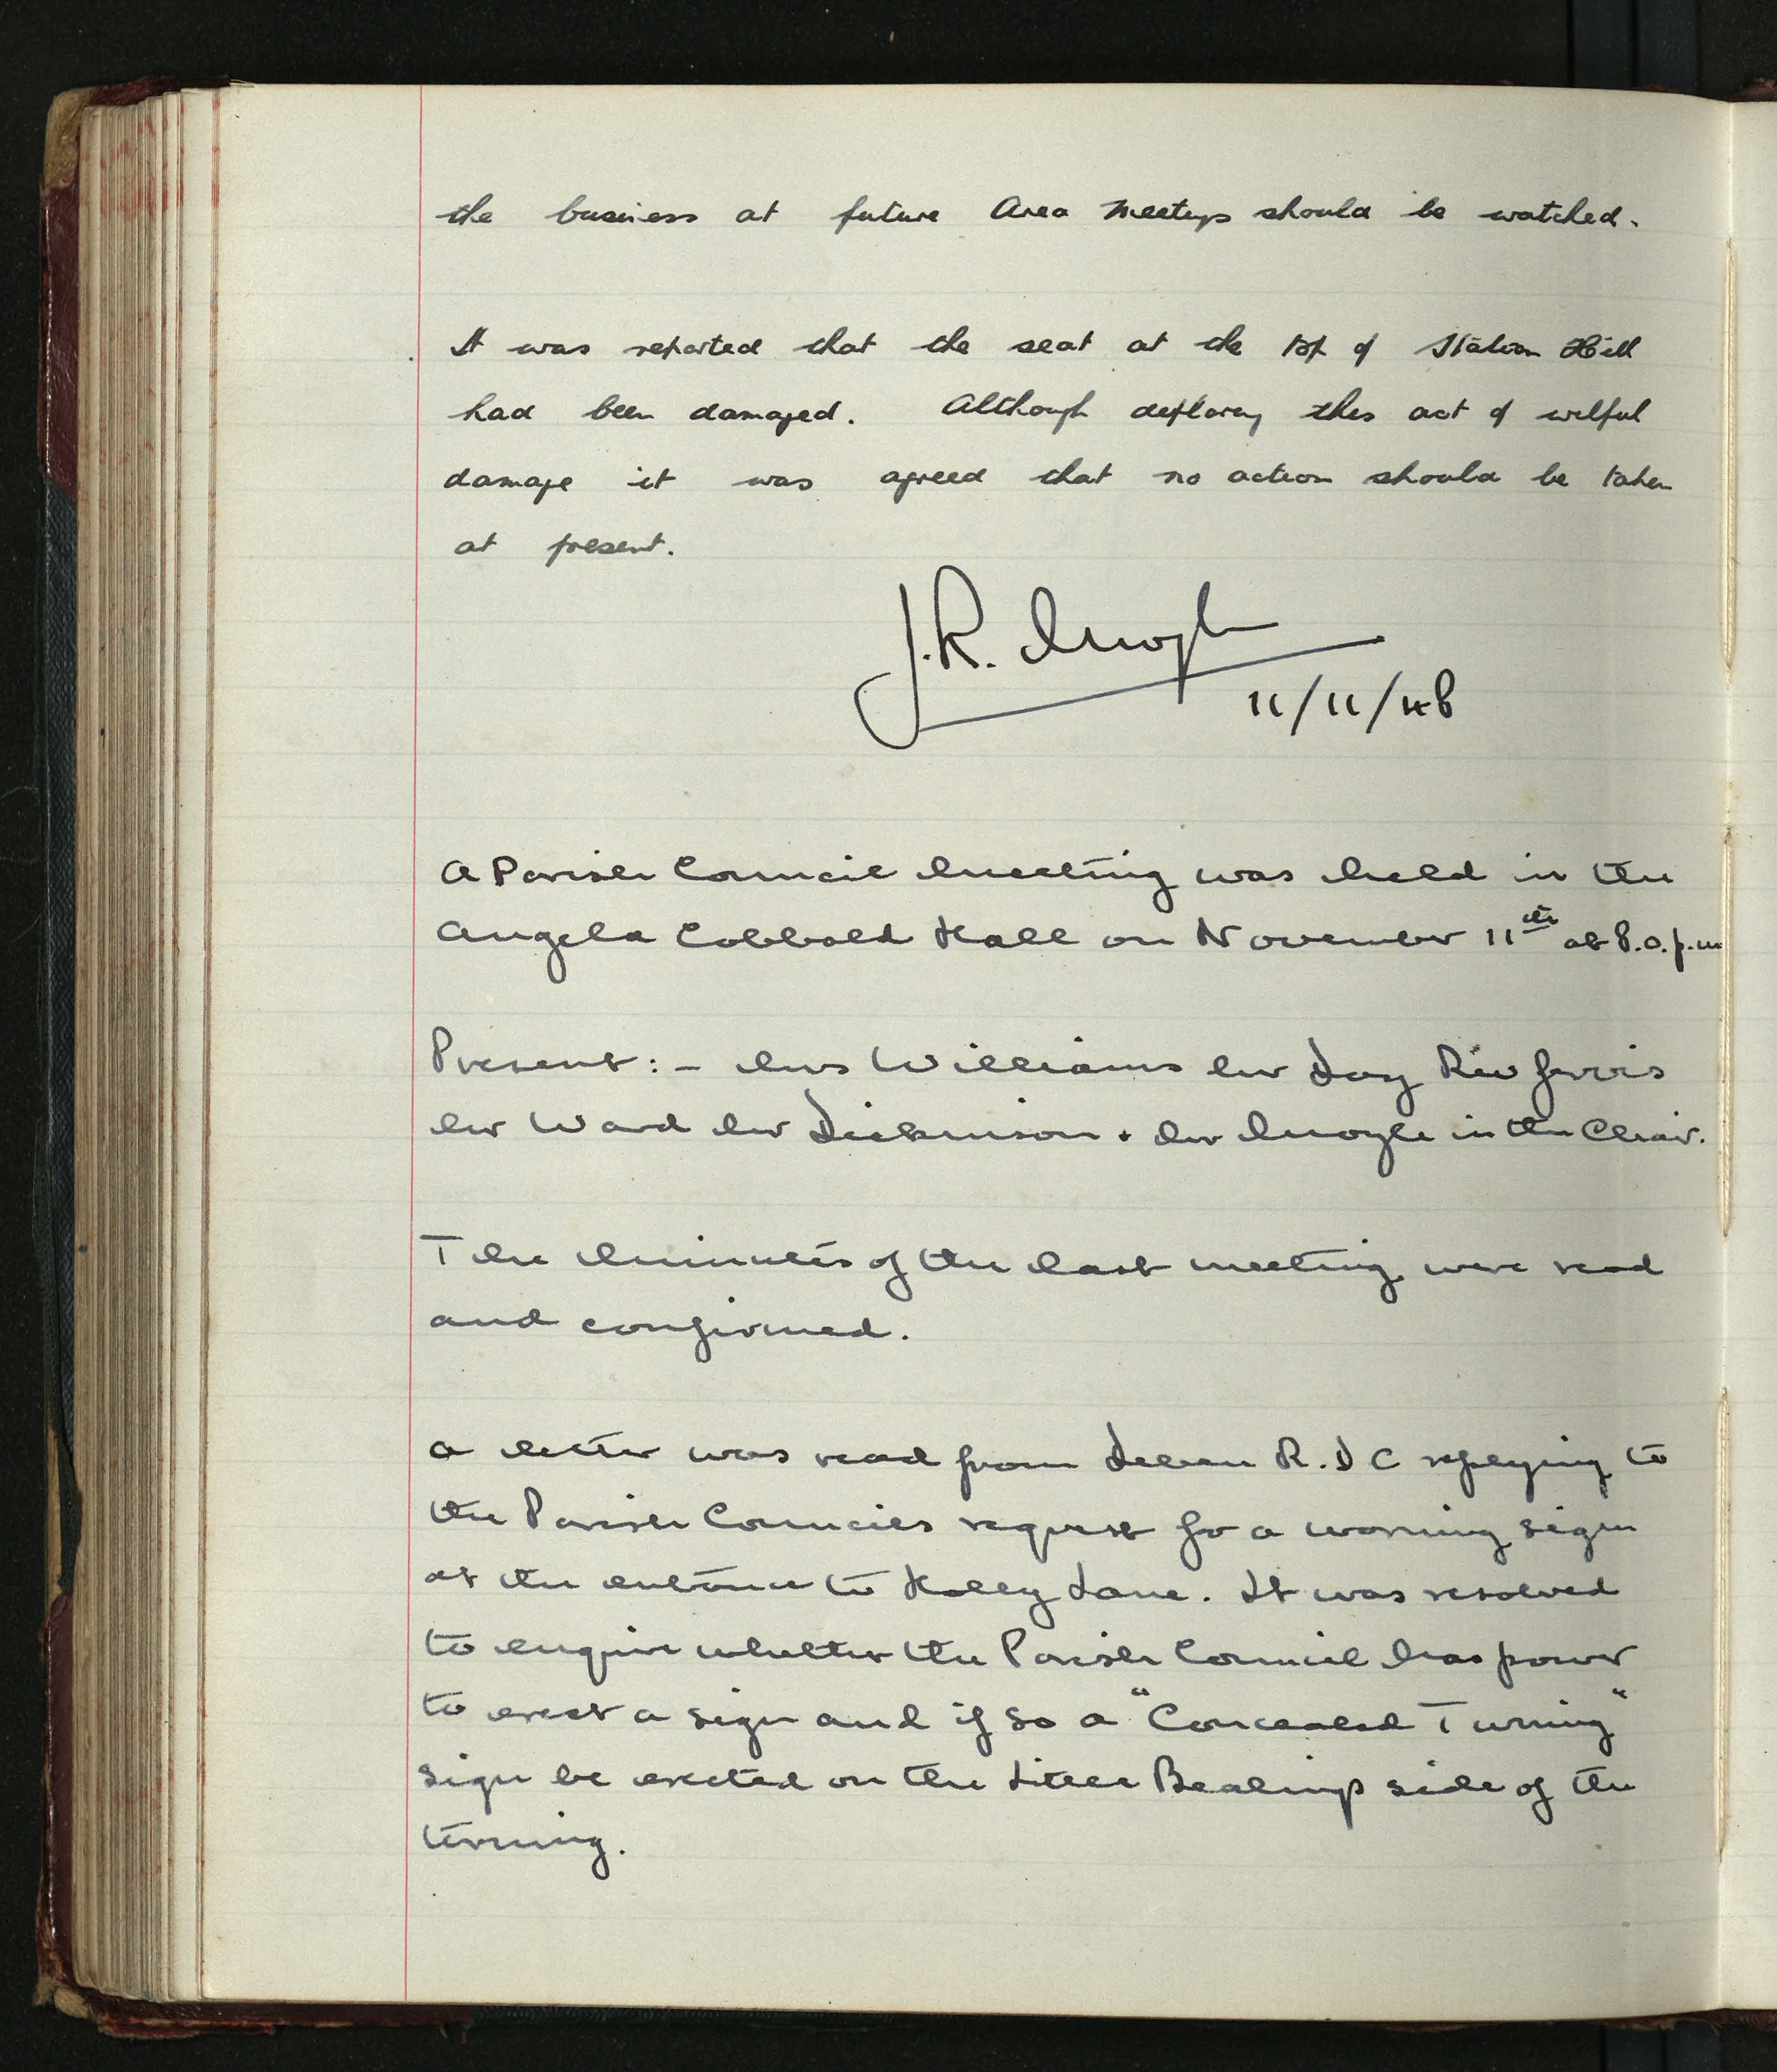 the business at future Area Meetings should be watched.
It was reported that the seat at the top of Station Hill
had been damaged. Although deploring this act of wilful
damage it was agreed that no action should be taken
at present.
J.R.
11/11/48
A Parish Council Meeting was held in the
Angela Cobbold Hall on November 11th at 8.0.p.m
Present: - Mrs Williams Mr Day Rev Jervis
Mr Ward Mr Dickinson + Mr in the Chair.
The Minutes of the last meeting were read
and confirmed.
A letter was read from Deben R.D C replying to
the Parish Councils request for a warning sign
at the entrance to Holly Lane. It was resolved
to enquire whether the Parish Council has power
to erect a sign and if so a "Concealed Turning"
sign be erected on the Little Bealings side of the
turning.